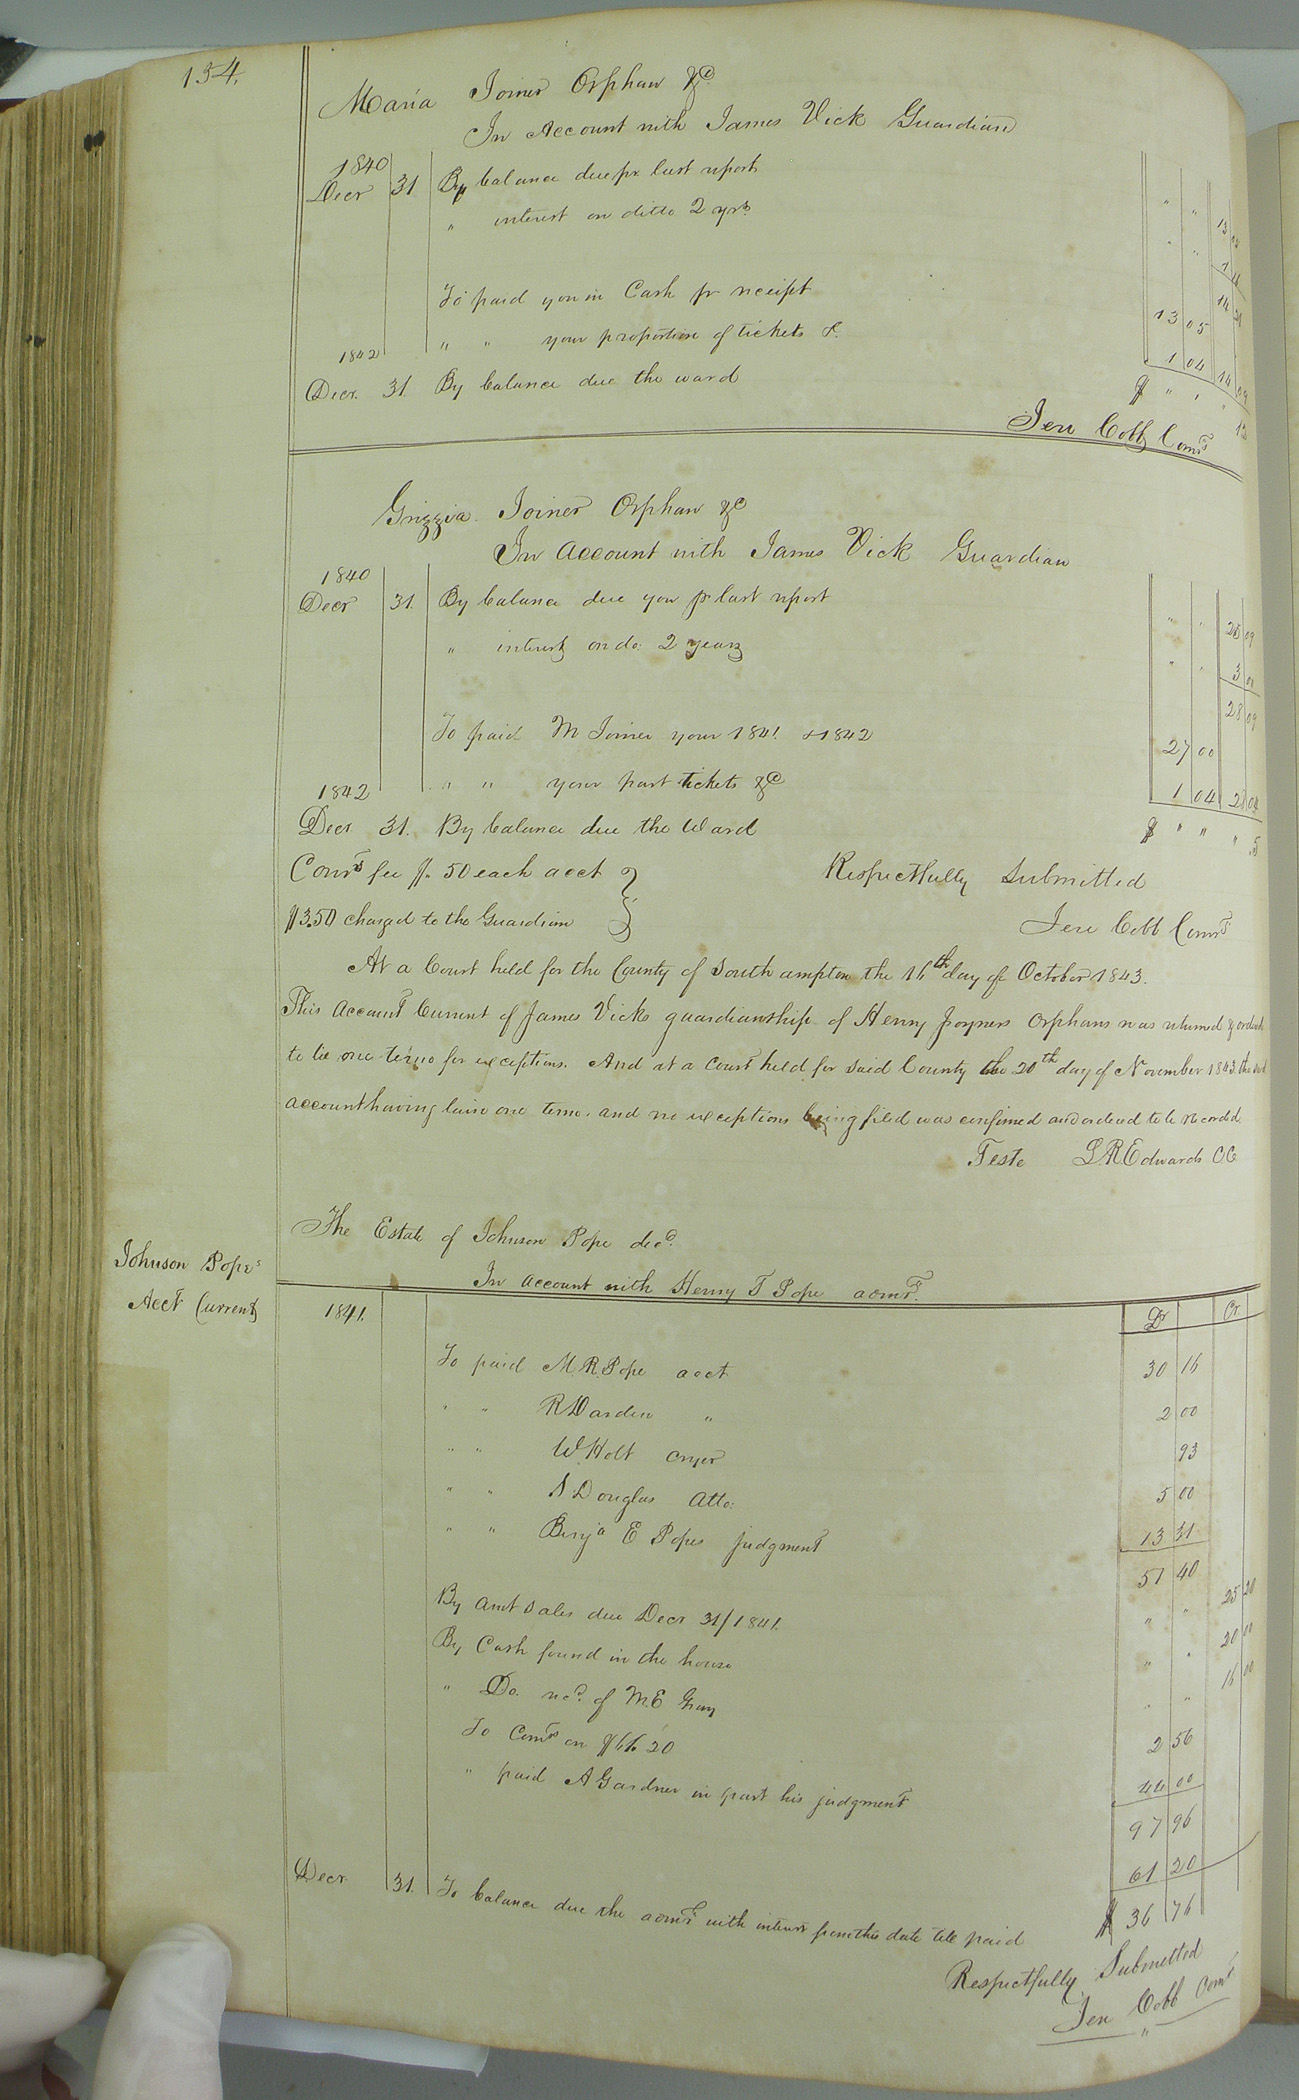 134.
Maria Joiner Orphan &c
In Account with James Vick Guardian
1840
Decr 31 By balance due pr last report " " 13 05
" interest on ditto 2 yrs " "
14
To paid you in Cash pr receipt 13 05
" " your proportion of tickets &. 1 04 14 09
1842
Decr. 31. By balance due the ward $ " " " 12
Jere Cobb Comr
Grizzia. Joiner Orphan &c
In Account with James Vick Guardian
1840
Decr 31. By balance due you pr last report " " 25 09
" interest on do. 2 years " " 3
28 09
To paid M Joiner your 1841 & 1842 27 00
" " your part tickets &c 1 04 28 04
1842
Decr 31. By balance due the Ward $ " " " 5
Comrs fee $. 50 each acct
Respectfully Submitted
$3.50 charged to the Guardian
Jere Cobb Comr
At a Court held for the County of Southampton the 16th day of October 1843.
This Account Current of James Vicks guardianship of Henry Joyners Orphans was returned & ordered
to lie one term for exceptions. And at a court held for said County the 20th day of November 1843. the said
account having lain one term. and no exceptions being filed was confirmed and ordered to be recorded
Teste L R Edwards CC
The Estate of Johnson Pope decd.
Johnson Popes
In account with Henry T Pope admr.
Acct Current
1841. Dr Cr
To paid M. R. Pope acct 30 16
" " R Darden " 2 00
" " W Holt cryer 93
" " S Douglas Atto: 5 00
" " Benja E Popes judgment 13 31
51 40
By amt Sales due Decr 31/1841. " " 25 20
By Cash found in the house " " 20 00
" Do. recd. of M. E Gray " " 16 00
To Coms on $61. 20 2 56
" paid A Gardner in part his judgment 44 00
97 96
61 20
Decr 31. To balance due the admr with interest from this date till paid $ 36 76
Respectfully Submitted
Jere Cobb Comr